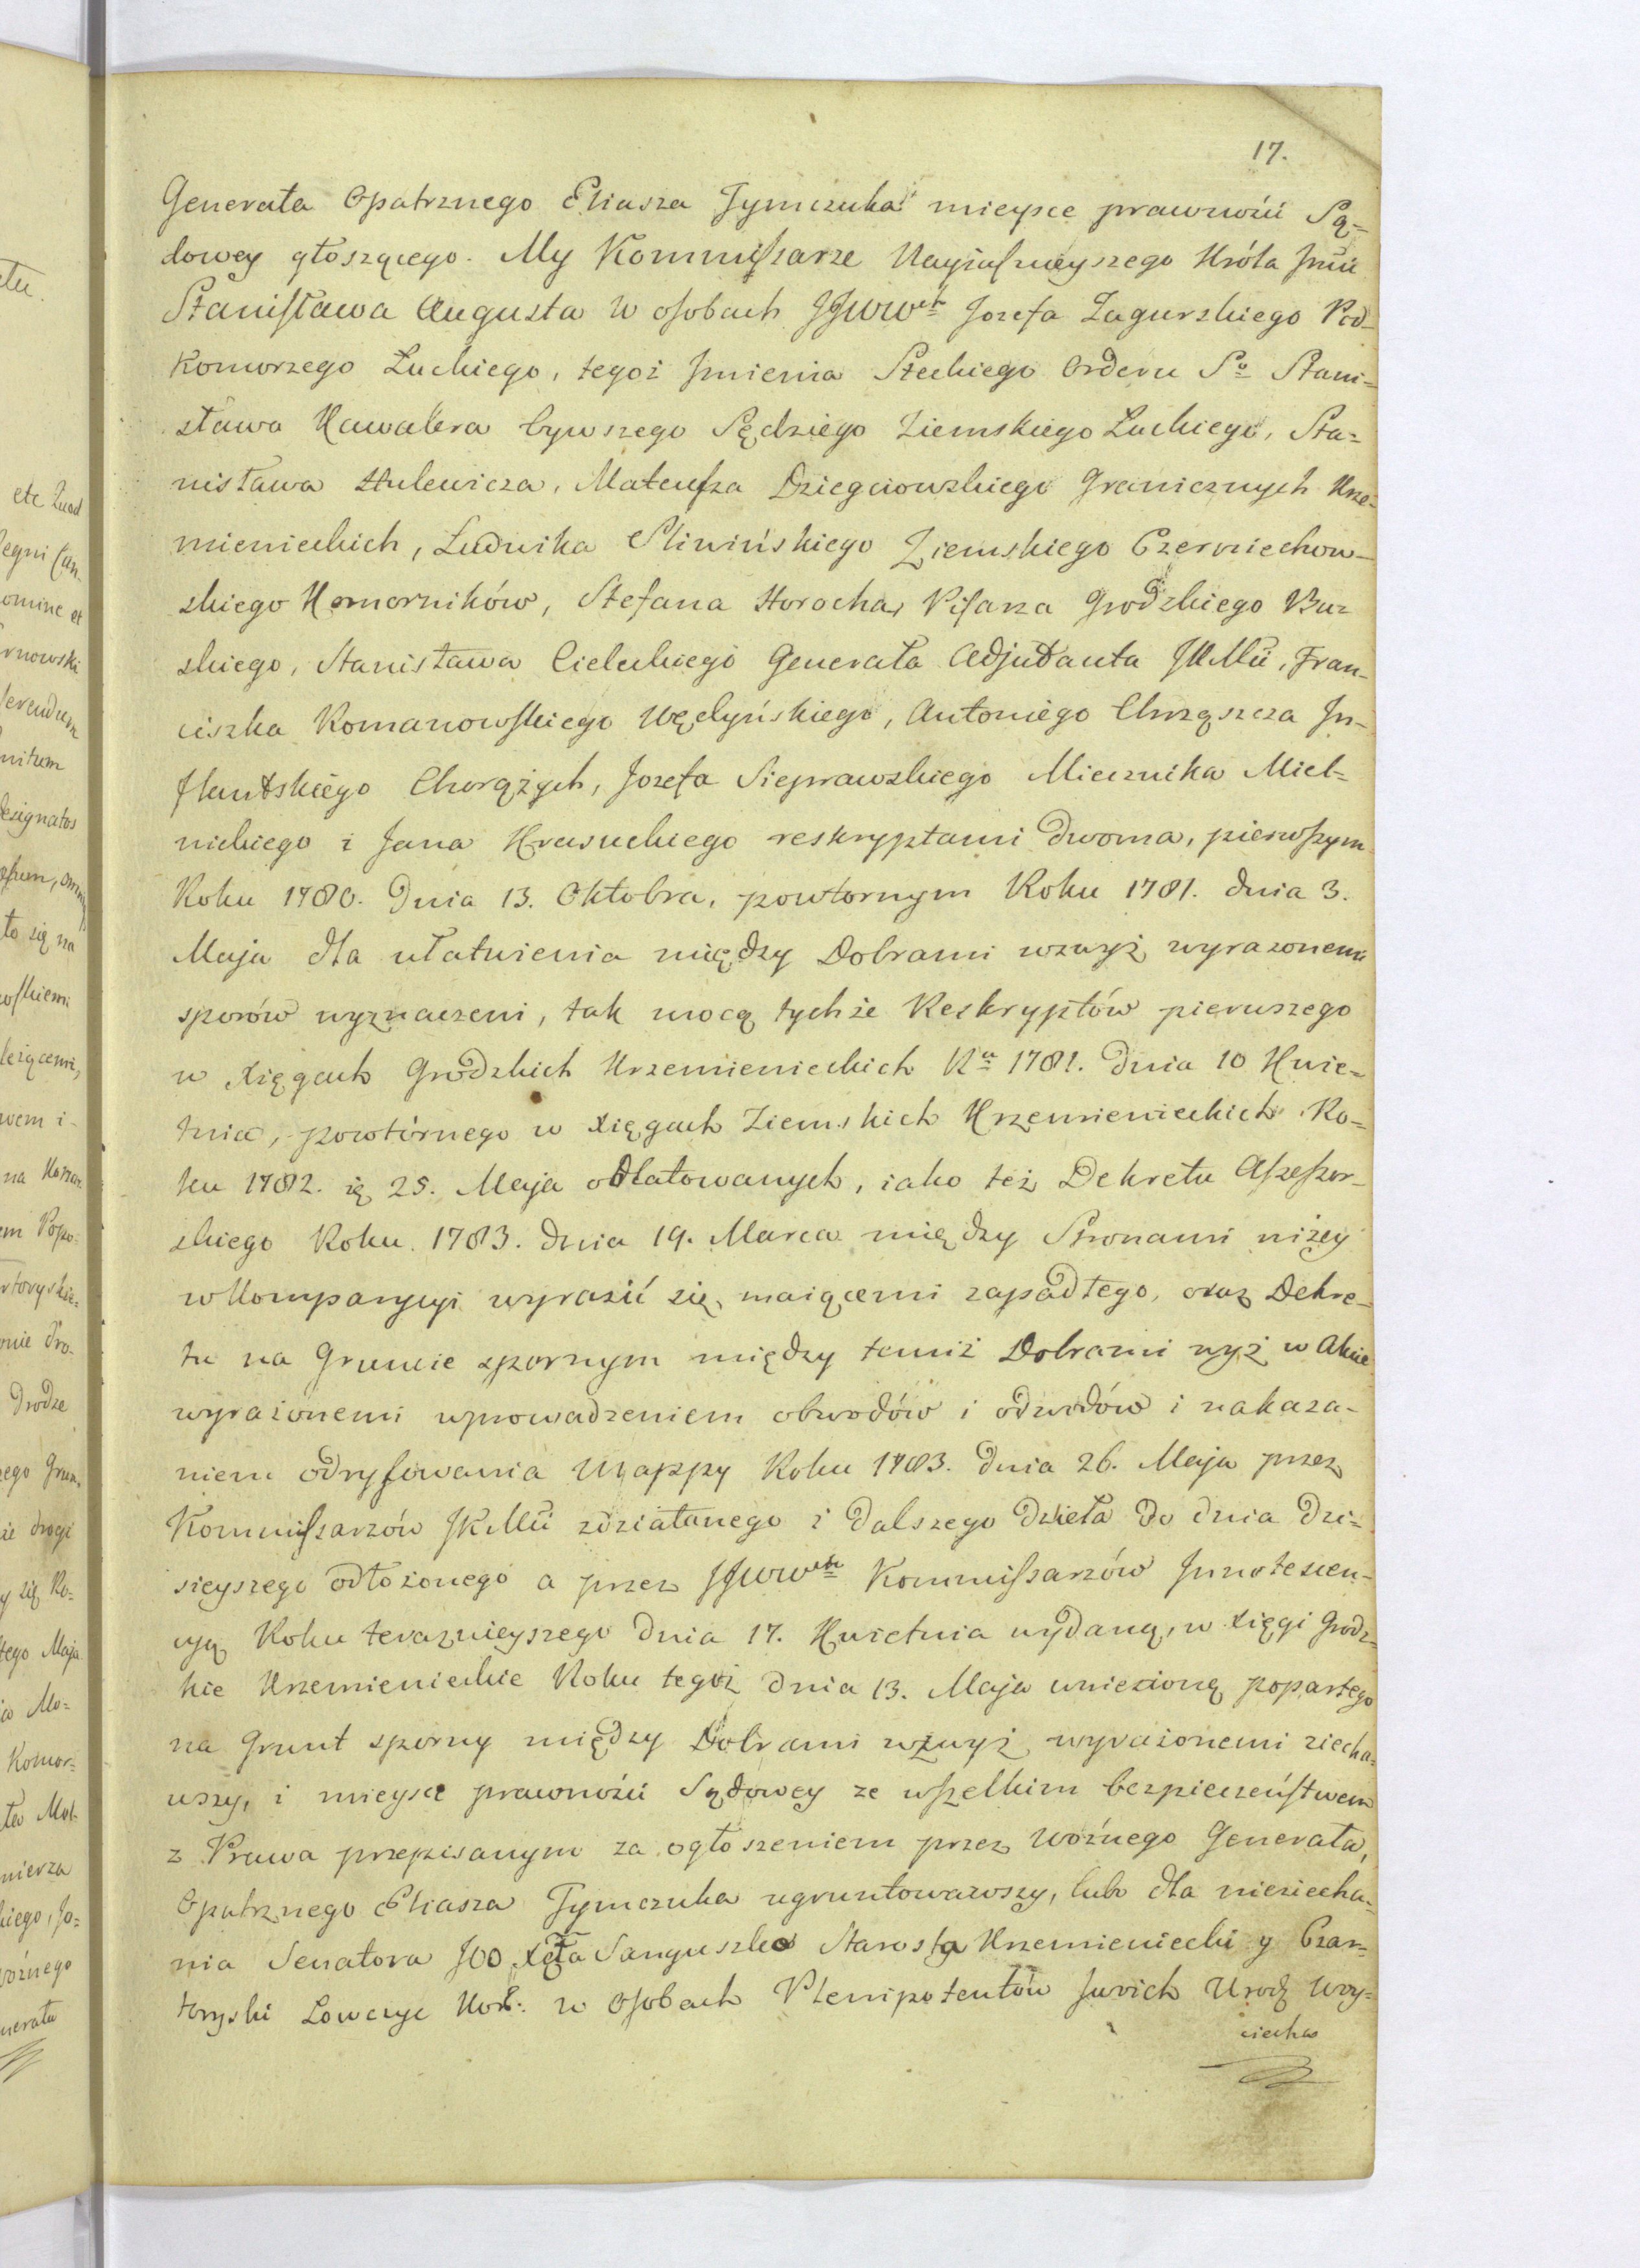 17.
Generała Opatrznego Eliasza Tymczuka mieysce prawności Są-
dowey głoszącego. My Kommiſsarze Nayiaſnieyszego Króla Jmci
Staniſława Augusta w oſobach JJWW Jozefa Zagurskiego Pod-
komorzego Łuckiego, tegoż Jmienia Steckiego Orderu So Stani-
sława Kawalera bywszego Sędziego Ziemskiego Łuckiego, Sta-
nisława Hulewicza, Mateuſza Dziegciowskiego Granicznych Krze-
mienieckich, Ludwika Sliwińskiego Ziemskiego Czerniechow-
skiego Komorników, Stefana Horocha, Piſarza Grodzkiego Bu-
skiego, Stanisława Cieleckiego Generała Adjutanta JKMci, Fran-
ciszka Romanowſkiego Wędyńskiego, Antoniego Chrząszcza In-
flantskiego Chorążych, Jozefa Sieprawskiego Miecznika Miel-
nickiego i Jana Krasuckiego reskryptami dwoma, pierwſzym
Roku 1780. Dnia 13. Oktobra, powtornym Roku 1781. dnia 3.
Maja dla ułatwienia między Dobrami wzwyż wyrazonemi
sporów wyznaczeni, tak mocą tychże Reskryptów pierwszego
w Xięgach Grodzkich Krzemienieckich Ru 1781. Dnia 10 Kwie-
tnia, powtórnego w xięgach Ziemskich Krzemienieckich Ro-
ku 1782. 25. Maja oblatowanych, iako też Dekretu Aſseſsor-
skiego Roku 1783. dnia 19. Marca między Stronami niżey
w Kompanycyi wyrazić się maiącemi zapadłego, oraz Dekre-
tu na Gruncie spornym między temiż Dobrami wyż w Akcie
wyrażonemi wprowadzeniem obwodów i odwodów i nakaza-
niem odryſowania Mappy Roku 1783. Dnia 26. Maja przez
Kommiſsarzów JKMci zdziałanego i dalszego dzieła do dnia dzi-
sieyszego odłożonego a przez JJWW Kommiſsarzów Jnnotescen-
cyą Roku terazнieyszego dnia 17. Kwietnia wydaną, w xięgi Grodz-
kie Krzemienieckie Roku tegoż dnia 13. Maja wniesioną popartego
na Grunt sporny między Dobrami wzwyż wyrażonemi ziecha-
wszy, i mieysce prawności Sądowey ze wſzelkim bezpieczeńſtwem
z Prawa przepisanym za ogłoszeniem przez Woźnego Generała,
Opatrznego Eliasza Tymczuka ugruntowawszy, lubo dla nieziecha-
nia Senatora JOO Xęta Sanguszko Starosta Krzemieniecki y Czar-
toryski Łowczyc Kor: w Oſobach Plenipotentów swoich Urodz Woy-
ciecha